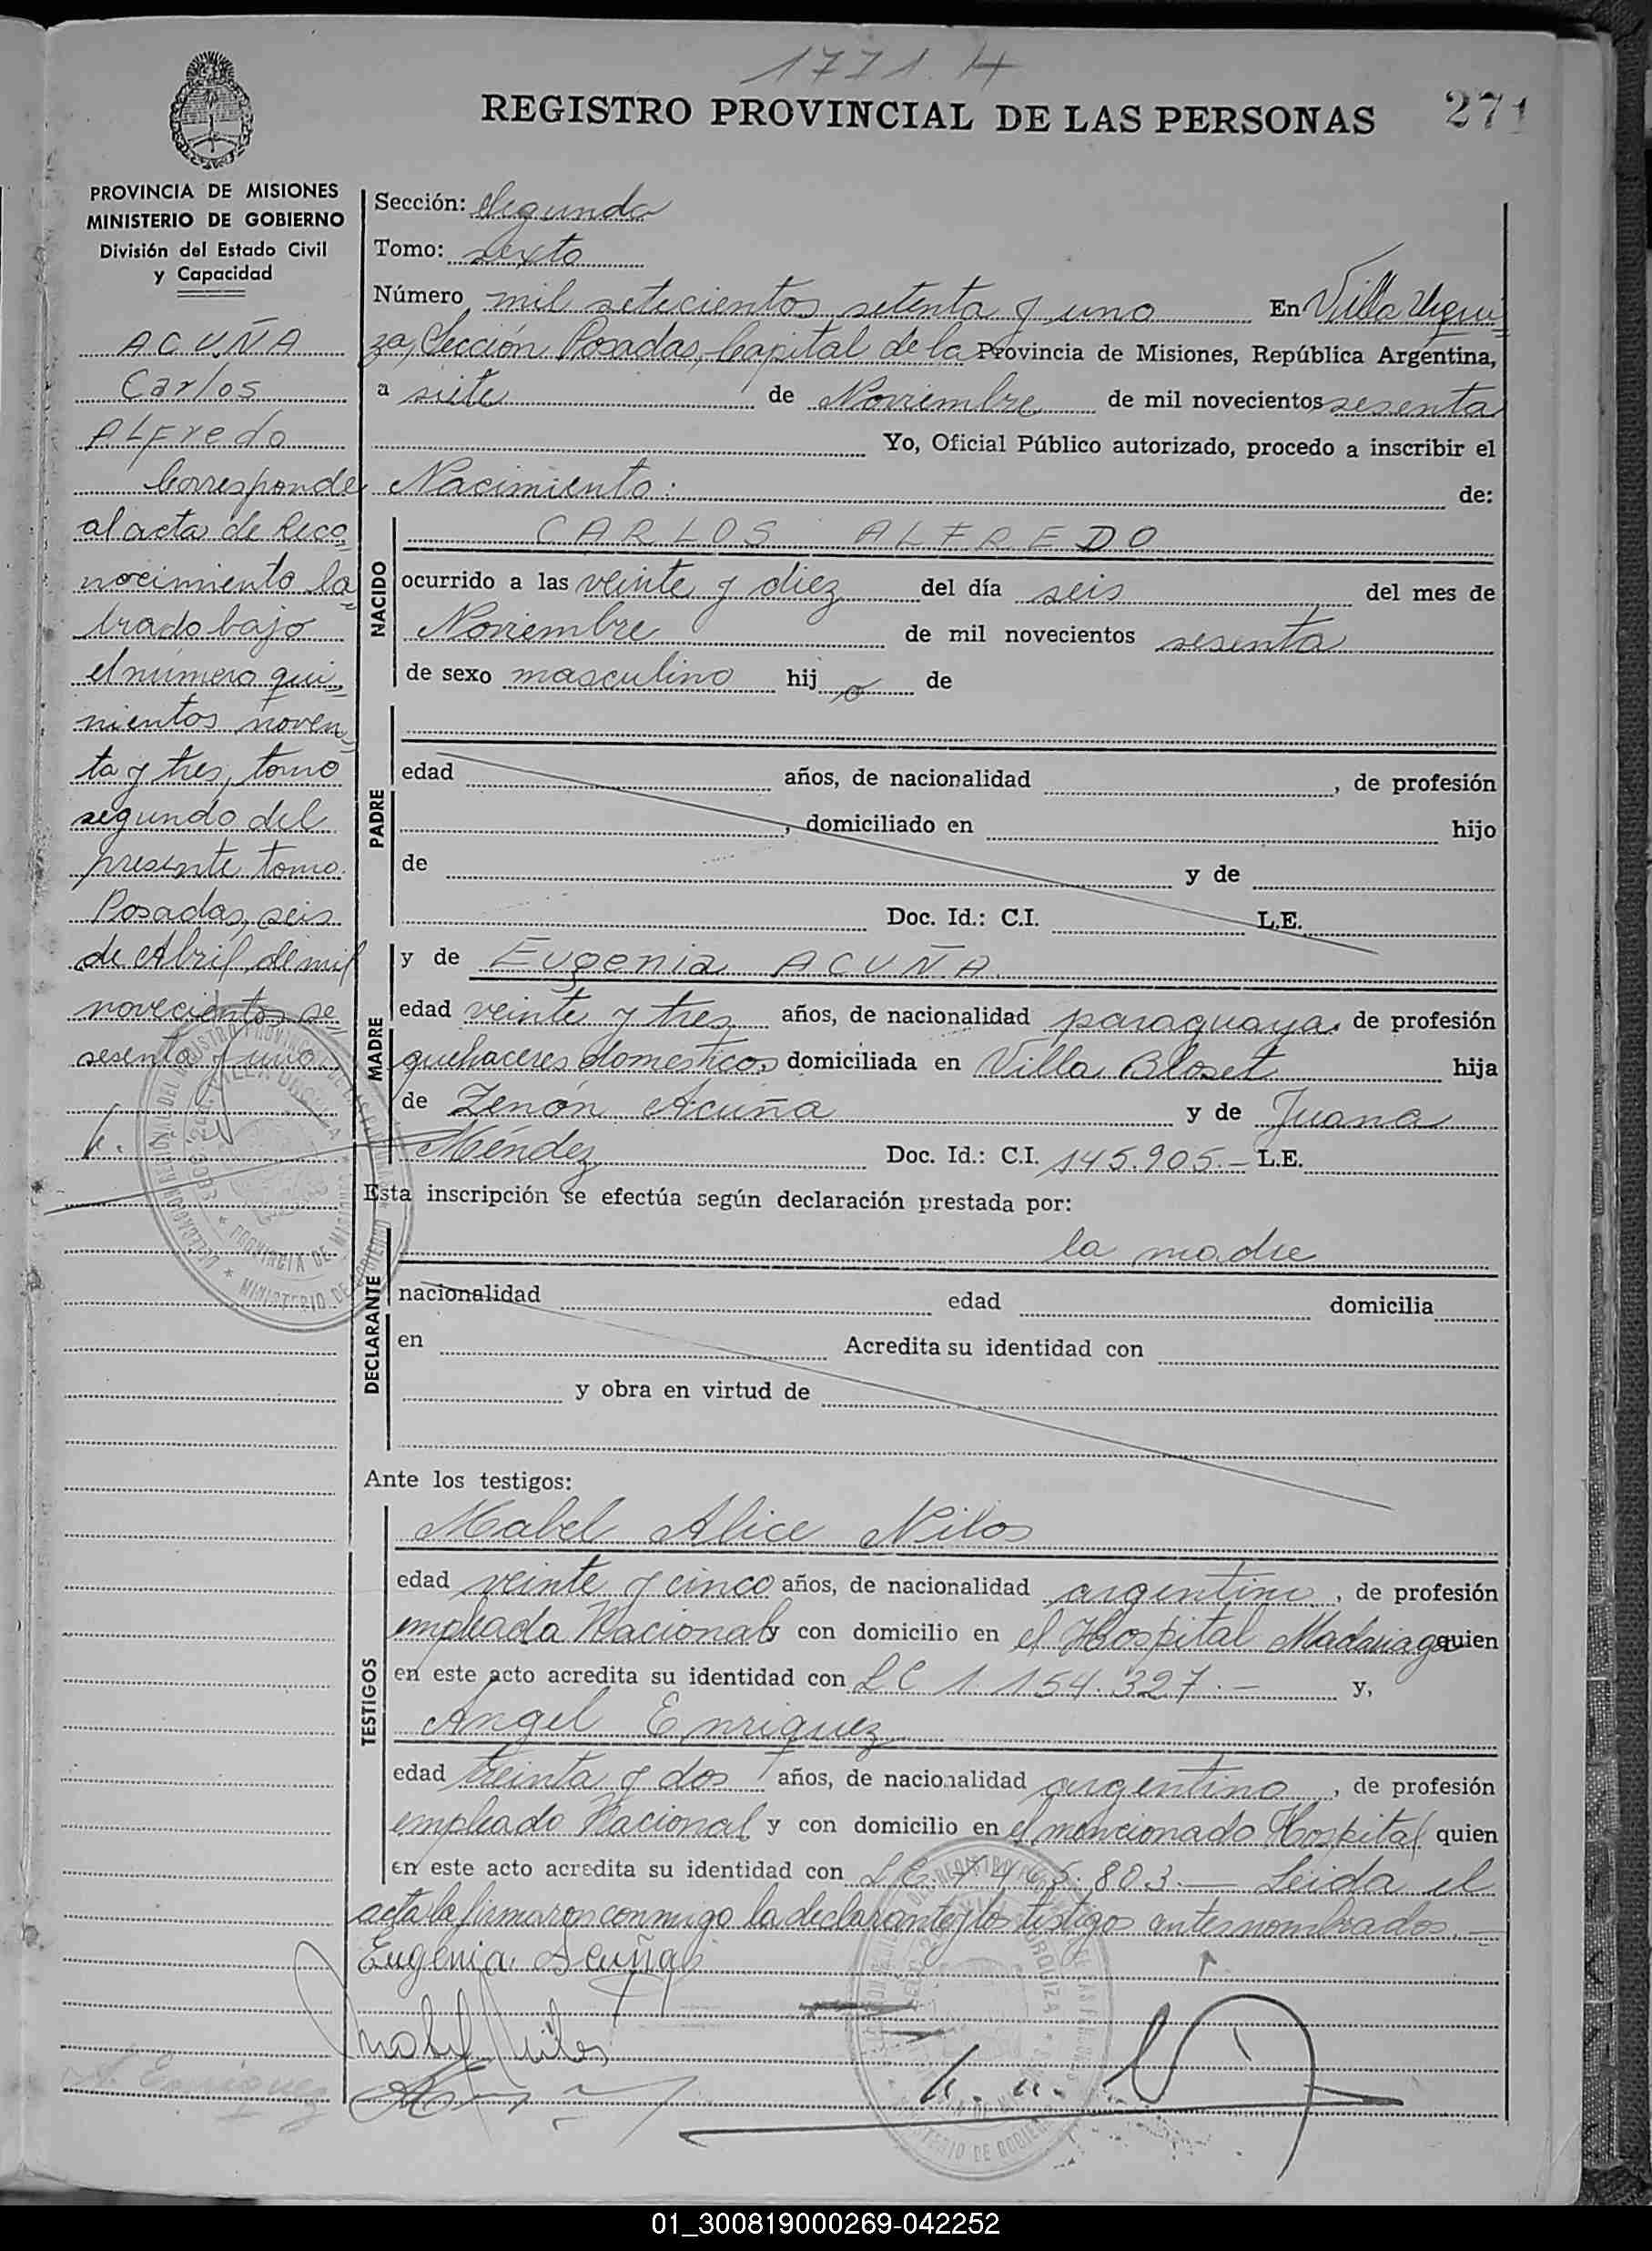 1771. H
REGISTRO PROVINCIAL DE LAS PERSONAS 271
PROVINCIA DE MISIONES
MINISTERIO DE GOBIERNO
División del Estado Civil
y Capacidad
ACUÑA
Carlos
ALFredo
Corresponde
al acta de Reco
nocimiento la=
brado bajo
el número qui=
nientos noven=
ta y tres, tomo
segundo del
presente tomo.
Posadas, seis
de Abril de mil
novecientos se
sesenta y uno
Sección: Segunda
Tomo: sexto
Número mil setecientos setenta y uno En Villa Urqui=
za, Sección Posadas, Capital de la Provincia de Misiones, República Argentina,
a siete de Noviembre de mil novecientos sesenta
Yo, Oficial Público autorizado, procedo a inscribir el
Nacimiento: de:
NACIDO
CARLOS ALFREDO
ocurrido a las veinte y diez del día seis del mes de
Noviembre de mil novecientos sesenta
de sexo masculino hij o de
PADRE
edad años, de nacionalidad , de profesión
, domiciliado en hijo
de y de
Doc. Id.: C.I. L.E.
MADRE
y de Eugenia ACUÑA
edad veinte y tres años, de nacionalidad paraguaya, de profesión
quehaceres domesticos domiciliada en Villa Bloset hija
de Zenón Acuña y de Juana
Méndez Doc. Id.: C.I. 145.905.- L.E.
Esta inscripción se efectúa según declaración prestada por:
la madre
DECLARANTE
nacionalidad edad domicilia
en Acredita su identidad con
y obra en virtud de
Ante los testigos:
TESTIGOS
Mabel Alice Nilos
edad veinte y cinco años, de nacionalidad argentina, de profesión
empleada Nacional y con domicilio en el Hospital Madariaga quien
en este acto acredita su identidad con LC 1.154.327.- y,
Angel Enriquez
edad treinta y dos años, de nacionalidad argentino, de profesión
empleado Nacional y con domicilio en el mencionado Hospital quien
en este acto acredita su identidad con L.E. 803.- Leida el
acta la firmaron conmigo la declarante y los testigos antes nombrados.=
Eugenia Acuña
Mabel Nilos
A. Enriquez
01_300819000269-042252